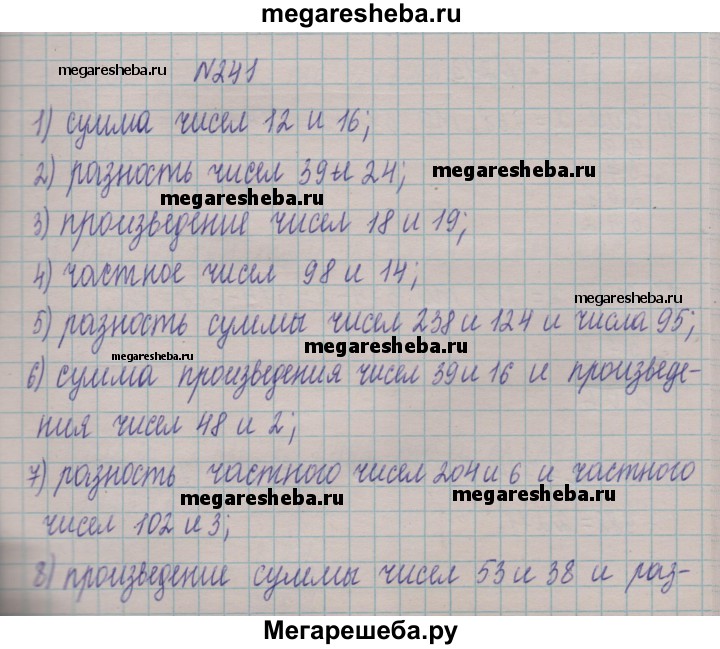 megaresheba.ru
megaresheba.ru №241
1) сумма чисел 12 и 16;
2) разность чисел 39 и 24; megaresheba.ru
megaresheba.ru
3) произведение чисел 18 и 19;
4) частное чисел 98 и 14;
megaresheba.ru
5) разность суммы чисел 238 и 124 и числа 95;
megaresheba.ru megaresheba.ru
6) сумма произведения чисел 39 и 16 и произведе-
ния чисел 48 и 2;
7) разность частного чисел 204 и 6 и частного
megaresheba.ru megaresheba.ru
чисел 102 и 3;
8) произведение суммы чисел 53 и 38 и раз-
Мегарешеба.ру